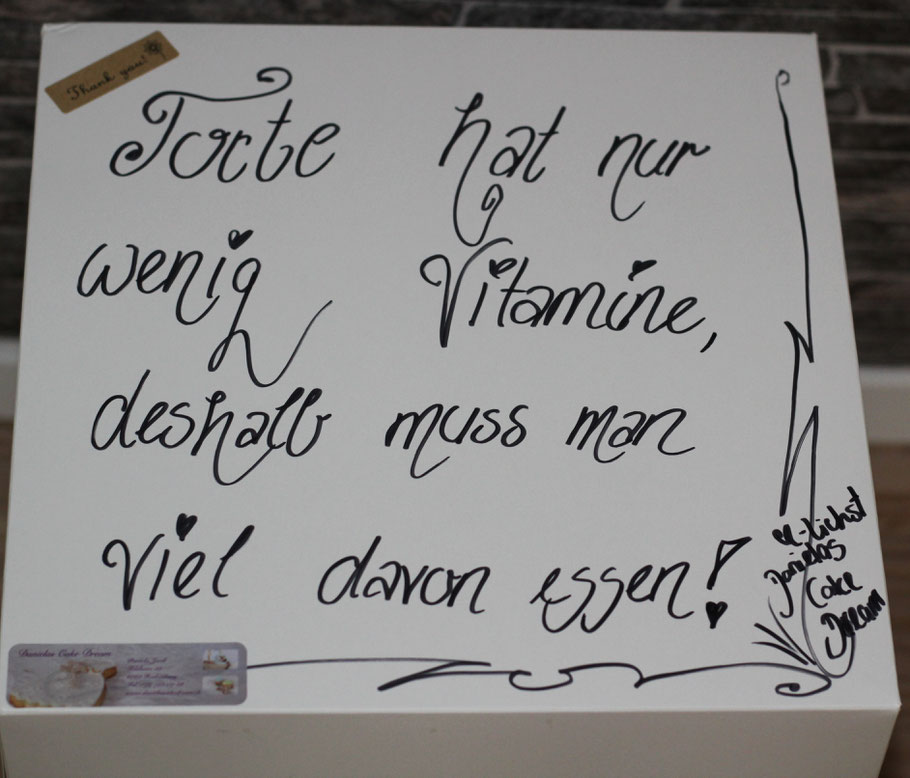 Thank you!
Torte hat nur
wenig Vitamine,
deshalb muss man
viel davon essen!
Danielas
Cake
Dream
Danielas Cake Dream